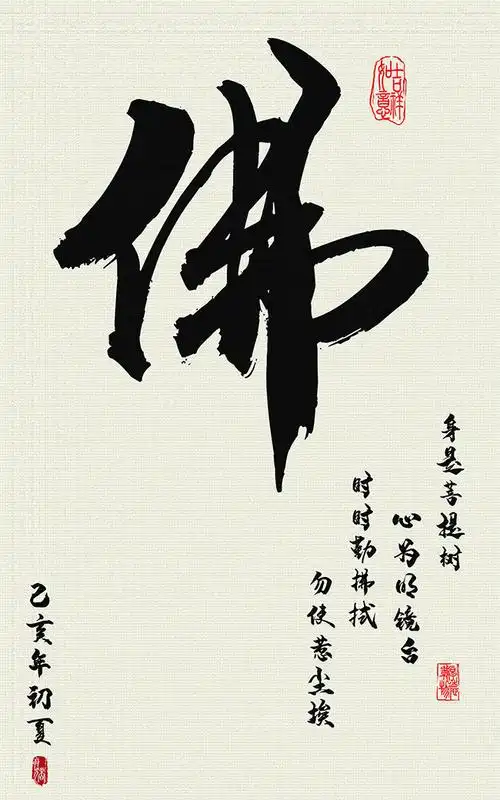 佛
吉祥
如意
身是菩提树
心为明镜台
时时勤拂拭
勿使惹尘埃
己亥年初夏